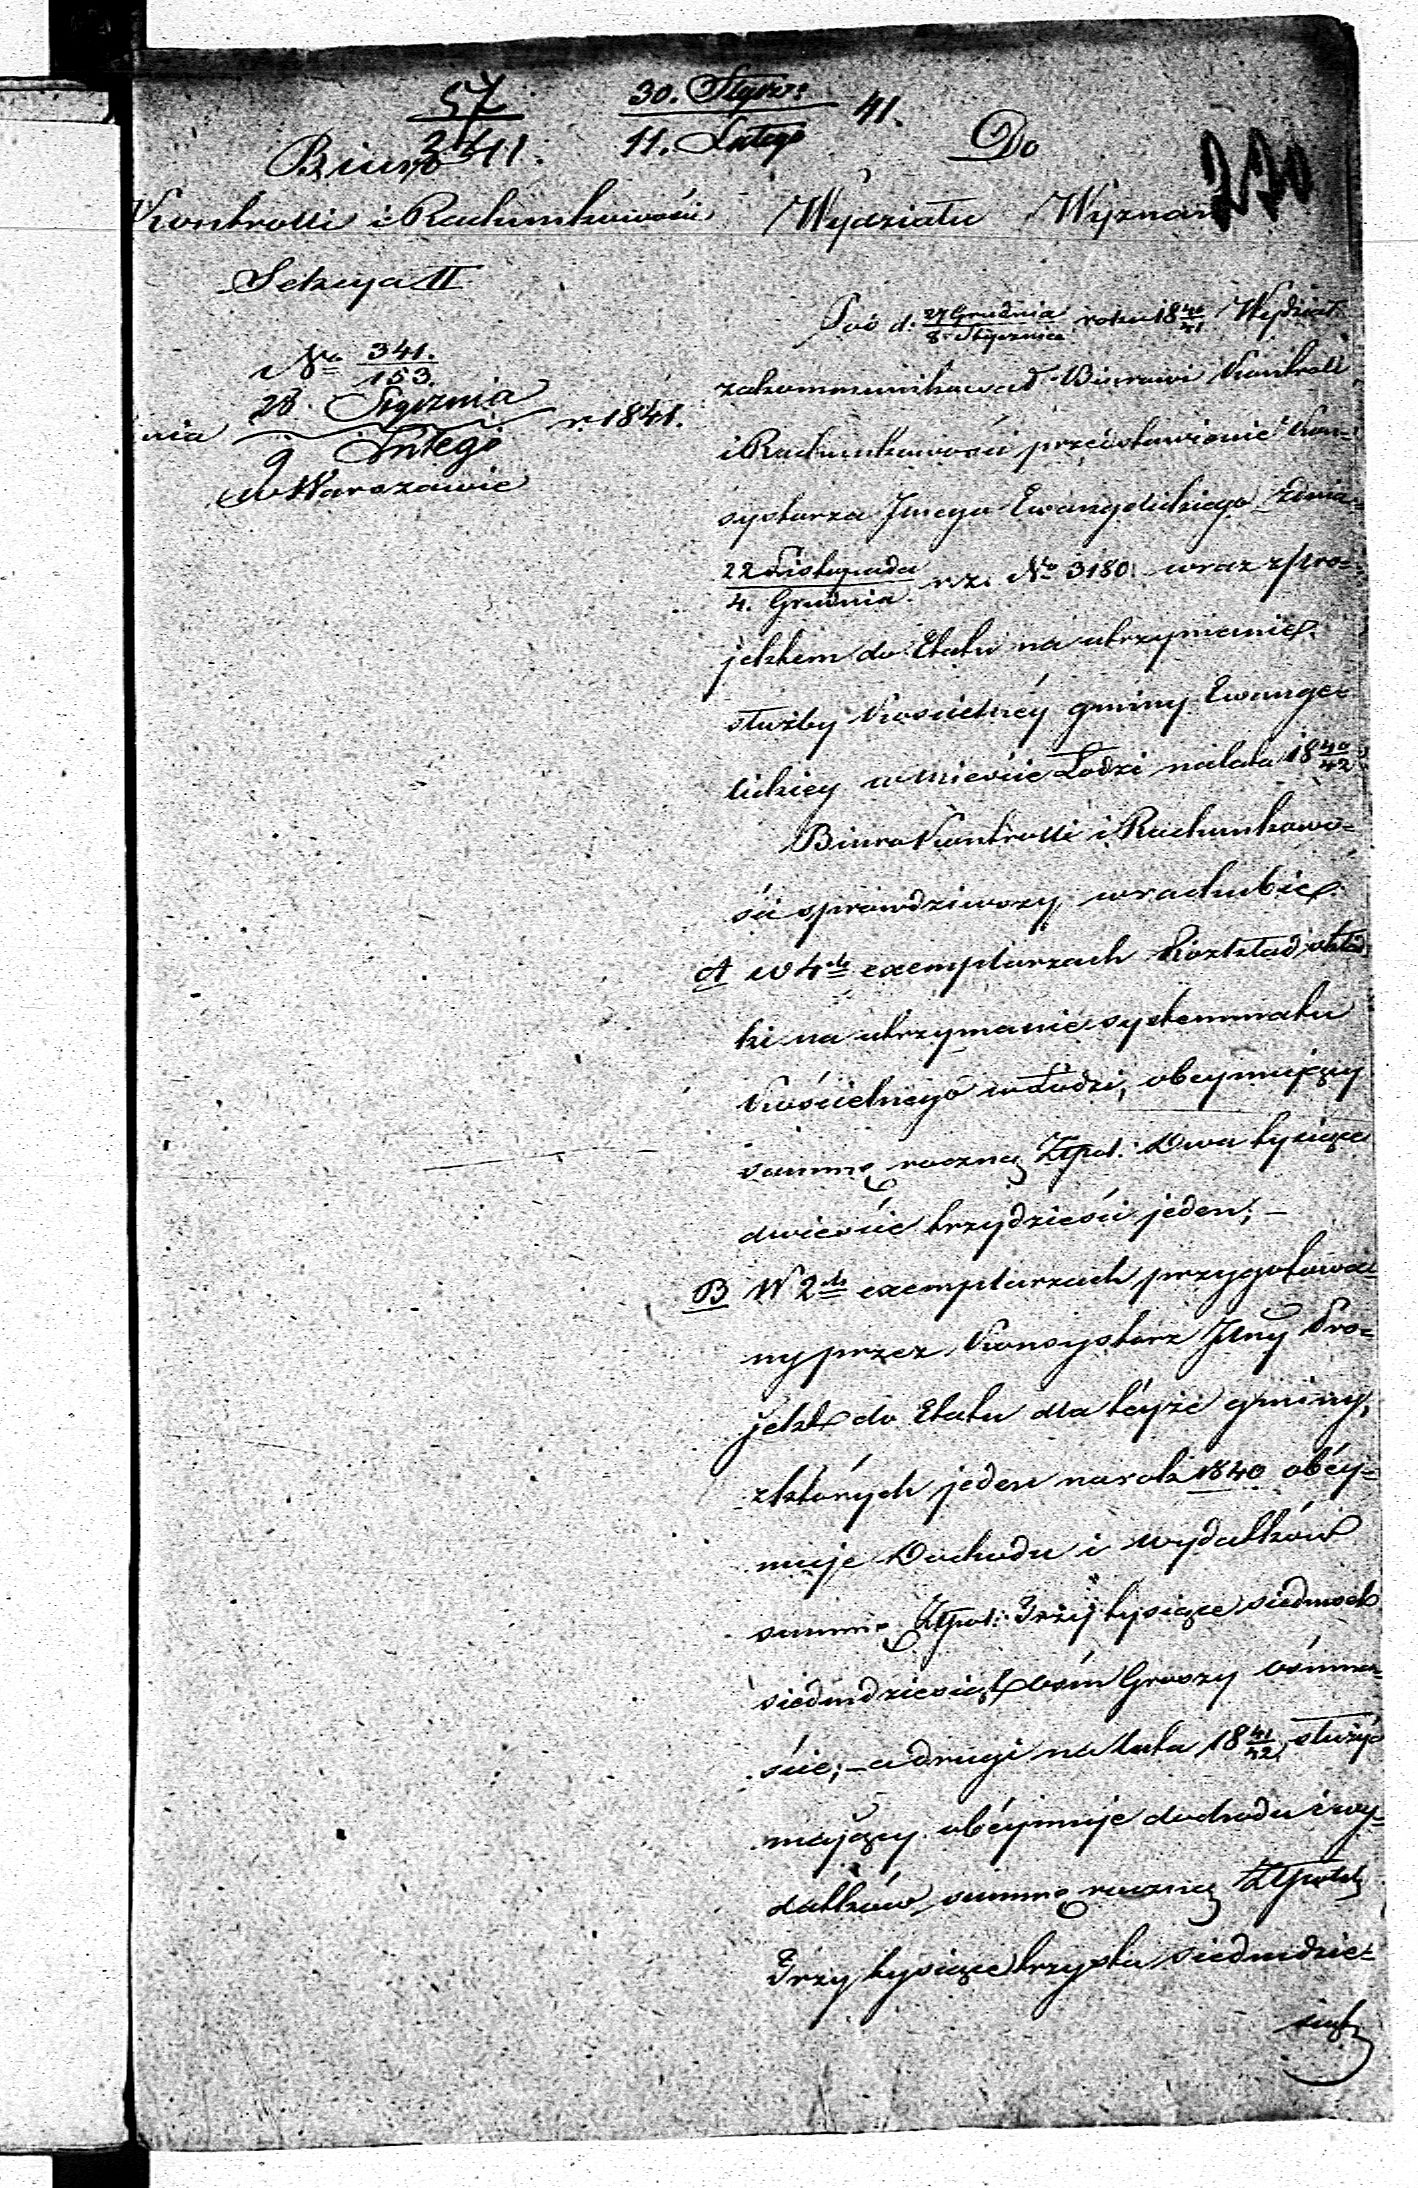 57
2311.
30. Stycz:
11. Lutego 41.
270
Biuro
Kontrolli i Rachunkowości
Sekcya II
No 341.
153.
nia 28. Stycznia
9 Lutego r. 1841.
w Warszawie
Do
Wydziału Wyznań
Pod d. 27 Grudnia
8 Stycznia roku 18 40/41 Wydział
zakommunikował Biurowi Kontrolli
i Rachunkowości przedstawienie Kon-
systorza Jlnego Ewangelickiego z dnia
22 Listopada
4. Grudnia r. z. No 3180. wraz z pro-
jektem do Etatu na utrzymanie
służby Kościelnéy gminy Ewange-
lickiey w mieście Łodzi na lata 18 40/42
Biuro Kontrolli i Rachunkowo-
ści sprawdziwszy w rachubie
A w 4ch exemplarzach Rozkład składki
na utrzymanie systemmatu
Kościelnego w Łodzi, obeymujący
summę roczną Złpol: Dwa tysiące
dwieście trzydzieści jeden; –
B W 2ch exemplarzach przygotowa-
ny przez Konsystorz Jlny Pro-
jekt do Etatu dla téyże gminy,
z których jeden na rok 1840 obéy-
muje Dochodu i wydatków
summę Złpol: Trzy tysiące siedmset
siedmdziesiąt ośm Groszy ośmna-
ście; – a drugi na lata 18 41/42 służyć
mający obéymuje dochodu i wy-
datków, summę roczną Złpolch
Trzy tysiące trzysta siedmdzie-
siąt